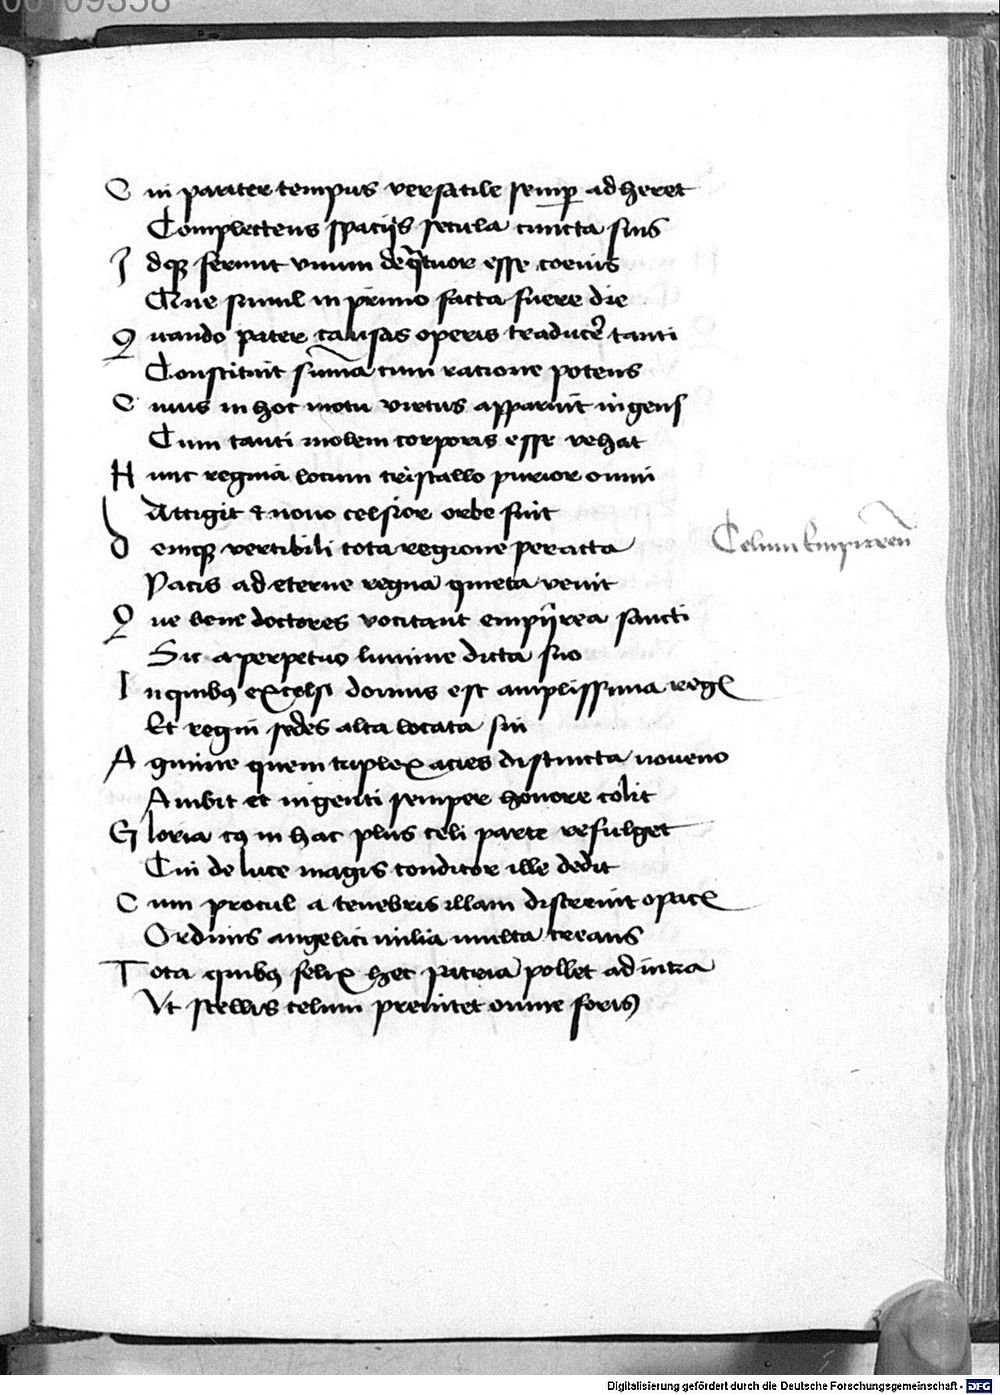 00109358
Cui pariter tempus versatile semꝑ adheret
Complectens spacijs secula cuncta suis
Idqꝫ ferunt vnum de quatuor esse coeuis
Que simul in primo facta fuere die
Quando pater causas operis traducere tanti
Constituit sum̄a cum racione potens
Cuius in hoc motu virtus apparuit ingens
Cum tanti molem corporis esse vehat
Hunc regina locum cristallo purior omni
Attigit & nono celsior orbe fuit
Deinqꝫ vertibili tota regione peracta
Celum Empirreū
Pacis ad eterne regna quieta venit
Que bene doctores vocitant empijrea sancti
Sic a perpetuo lumine dicta suo
In quibus excelsi domus est amplissima regis
Et regni sedes alta locata sui
Agmine quem triplex acies distincta noueno
Ambit et ingenti semper honore colit
Gloria cuius in hac plus celi parte refulget
Cui de luce magis conditor ille dedit
Cum procul a tenebris illam discreuit opacis
Ordinis angelici milia multa creans
Tota quibus felix hec patria pollet ad intra
Vt stellis celum prenitet omne foris
Digitalisierung gefördert durch die Deutsche Forschungsgemeinschaft - DFG